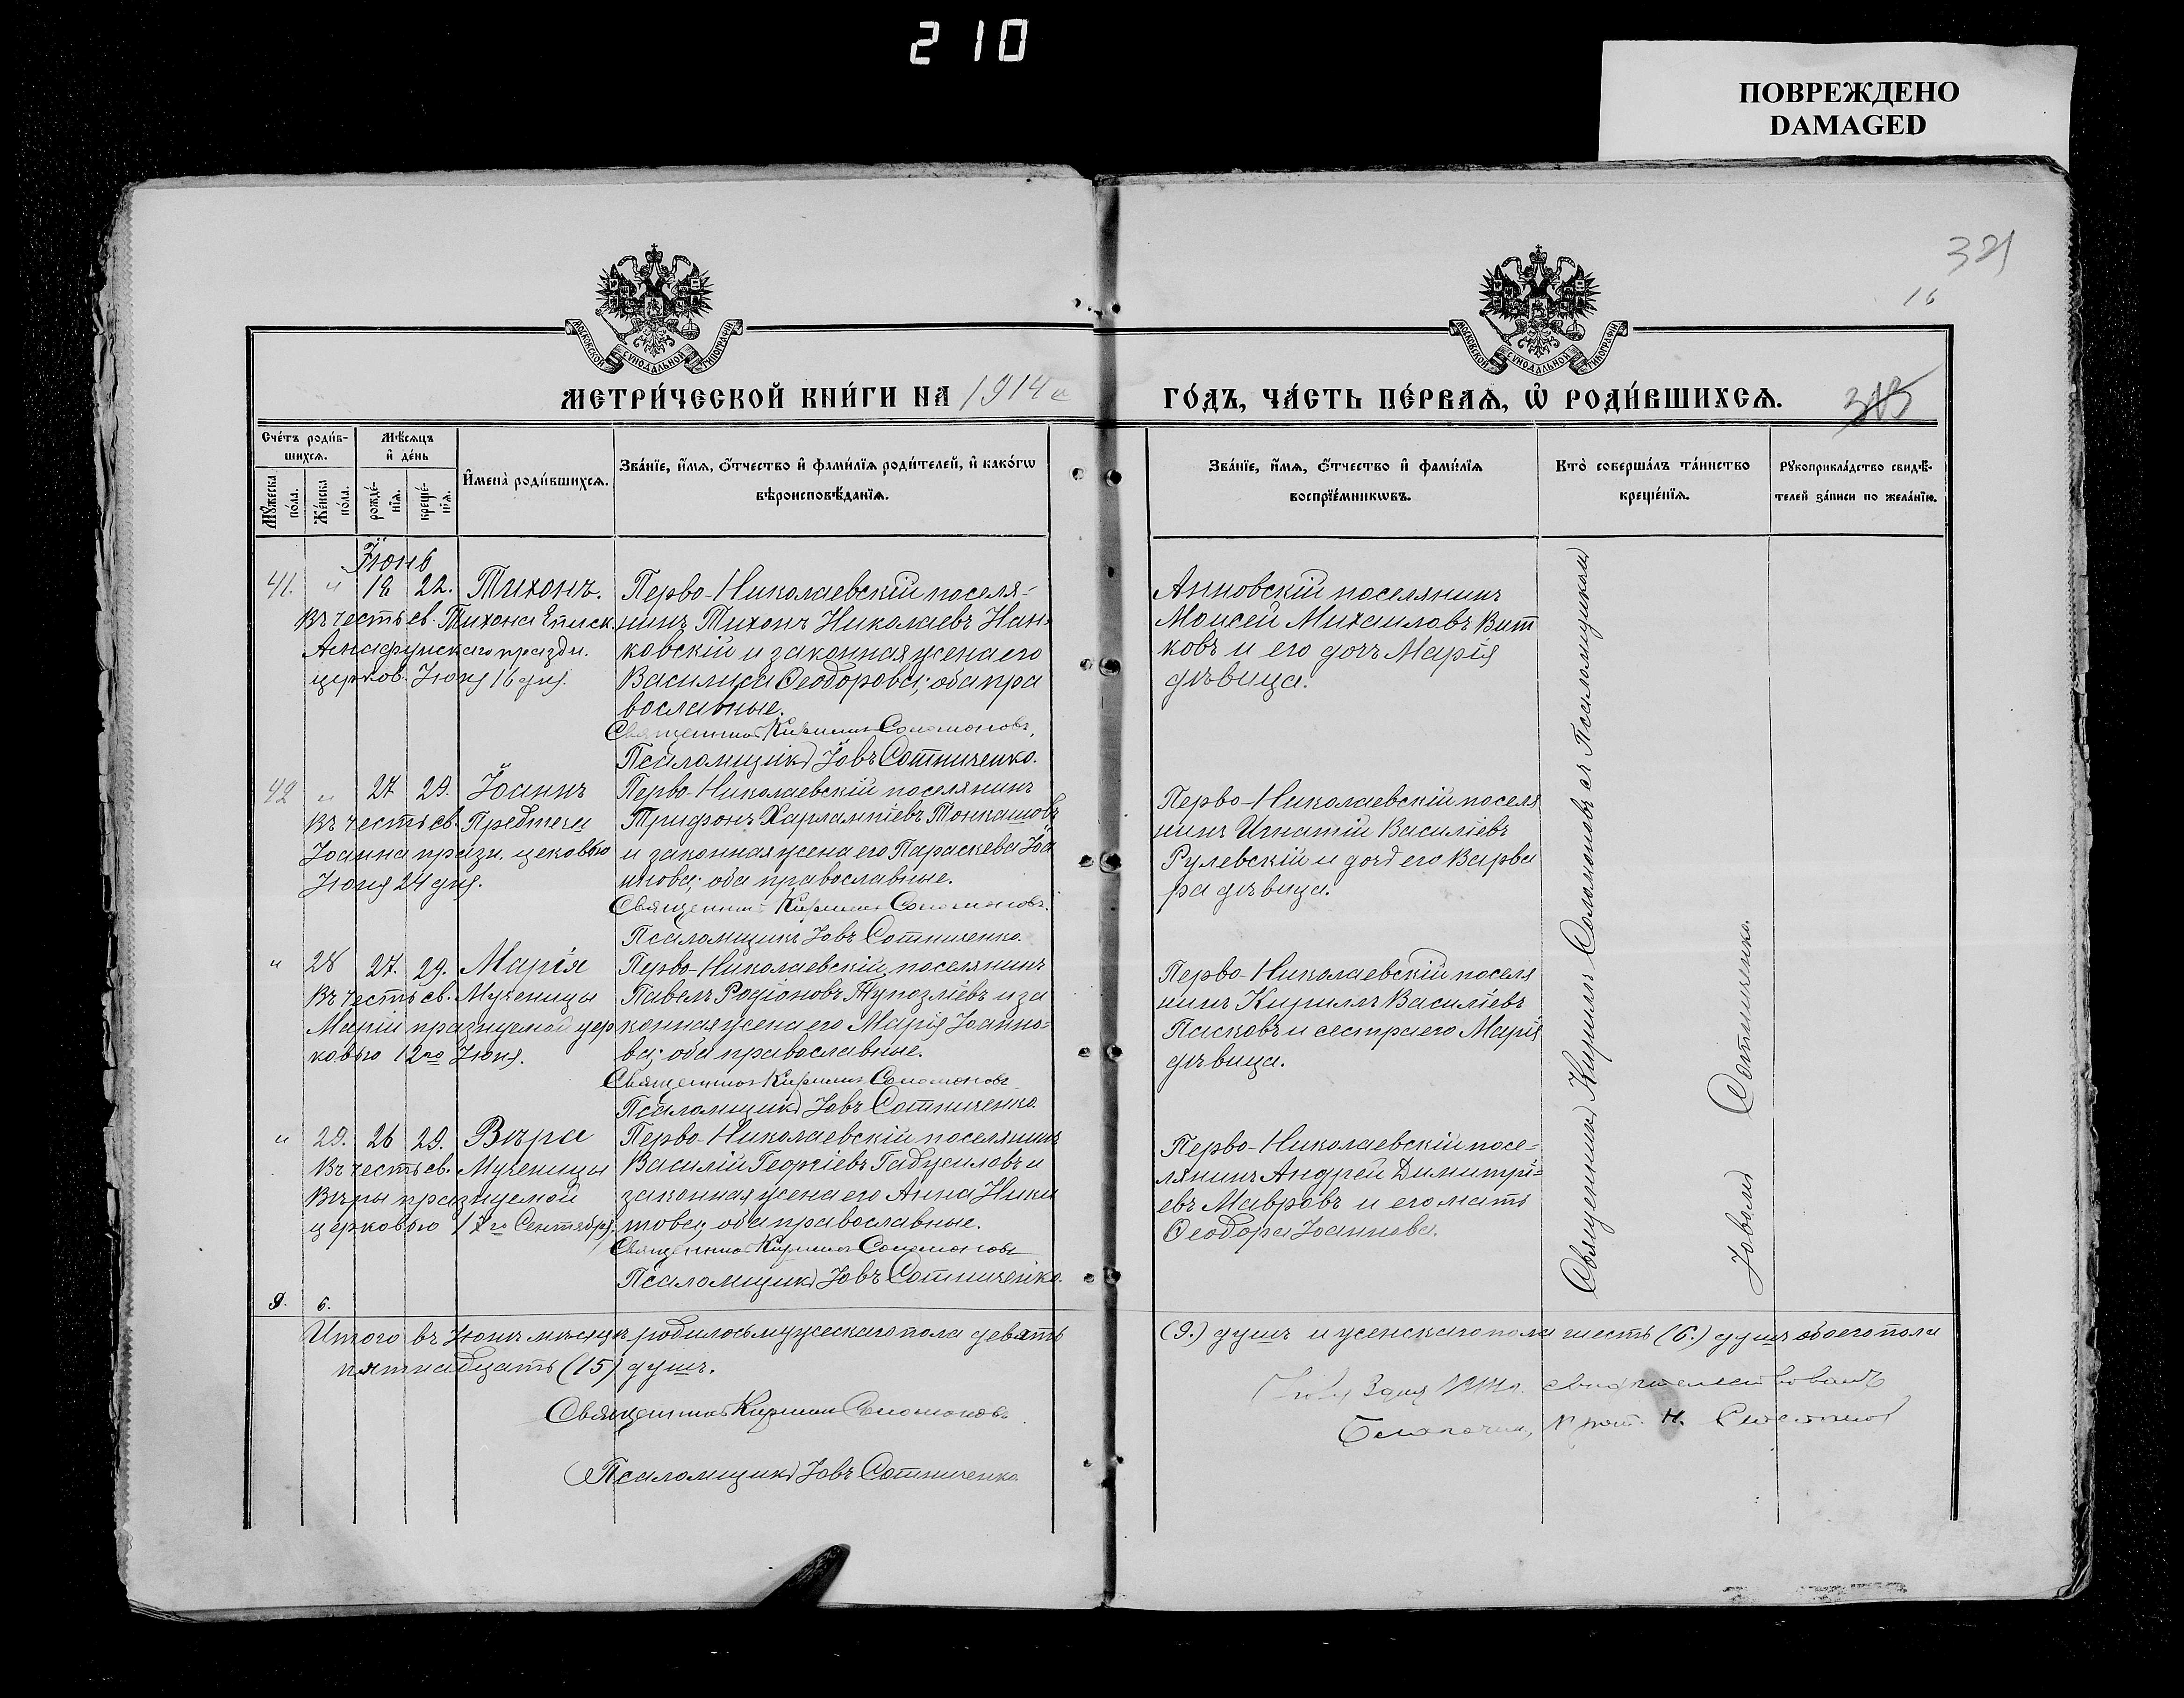 210
ПОВРЕЖДЕНО
DAMAGED
16
МОСКОВСКОЙ СѴНОДАЛЬНОЙ ТИПОГРАФІИ
МОСКОВСКОЙ СѴНОДАЛЬНОЙ ТИПОГРАФІИ
МЕТРИ́ЧЕСКОЙ КНИ́ГИ НА 1914
ГО́ДЪ, ЧА́СТЬ ПЕ́РВАѦ, Ѡ҆ РОДИ́ВШИХСѦ.
Сче́тъ роди́в-
шихсѧ.
Мѣ́сѧцъ
и҆ де́нь
Мꙋ́жеска
по́ла.
Же́нска
по́ла.
рожде́-
нїѧ.
креще́-
нїѧ.
И҆мена̀ роди́вшихсѧ.
Зва́нїе, и҆́мѧ, ѻ҆́тчество и҆ фами́лїѧ роди́телей, и҆ како́гѡ
вѣроисповѣ́данїѧ.
Зва́нїе, и҆́мѧ, ѻ҆́тчество и҆ фами́лїѧ
воспрїе́мникѡвъ.
Кто̀ соверша́лъ та́инство
креще́нїѧ.
Рꙋкоприкла́дство свидѣ́-
телей за́писи по жела́нїю.
Іюнь
41. " 18 22. Тихонъ.
Въ честь св. Тихона Еписк.
Амафунскаго праздн.
церков. Іюня 16 дня.
Перво-Николаевскій поселя-
нинъ Тихонъ Николаевъ Нан-
ковскій и законная жена его
Василиса Ѳеодорова; оба пра
вославные.
Священникъ Кириллъ Соломоновъ.
Псаломщикъ Іовъ Сотниченко.
Анновскій поселянинъ
Моисей Михаиловъ Вит
ковъ и его дочь Марія
дѣвица.
42 " 27 29. Іоаннъ
Въ честь св. Предтечи
Іоанна празн. цековью
Іюня 24 дня.
Перво-Николаевскій поселянинъ
Трифонъ Харлампіевъ Тонкашовъ
и законная жена его Параскева Іоа
ннова; оба православные.
Священникъ Кириллъ Соломоновъ.
Псаломщикъ Іовъ Сотниченко.
Перво-Николаевскій поселя
нинъ Игнатій Василіевъ
Рулевскій и дочь его Варва
ра дѣвица.
" 28 27. 29. Марія
Въ честь св. Мученицы
Маріи празнуемой цер
ковью 12го Іюня.
Перво-Николаевскій поселянинъ
Павелъ Родіоновъ Тупозліевъ и за
конная жена его Марія Іоанно-
ва; оба православные.
Священникъ Кириллъ Соломоновъ
Псаломщикъ Іовъ Сотниченко.
Перво-Николаевскій поселя
нинъ Кириллъ Василіевъ
Пасковъ и сестра его Марія
дѣвица.
" 29. 26 29. Вѣра
Въ честь св. Мученицы
Вѣры празнуемой
церковью 17го Сентября.
Перво-Николаевскій поселянинъ
Василій Георгіевъ Габужиловъ и
законная жена его Анна Ники
това; оба православные.
Священникъ Кириллъ Соломоновъ
Псаломщикъ Іовъ Сотниченко.
Перво-Николаевскій посе-
лянинъ Андрей Димитрі-
евъ Мавровъ и его мать
Ѳеодора Іоаннова.
Священникъ Кириллъ Соломоновъ съ Псаломщикомъ
Іовомъ Сотниченко.
9. 6.
Итого въ Іюнѣ мѣсяцѣ родилось мужескаго пола девять
(9.) душъ и женскаго пола шесть (6.) душъ обоего пола
пятнадцать (15) душъ.
Священникъ Кириллъ Соломоновъ
Псаломщикъ Іовъ Сотниченко